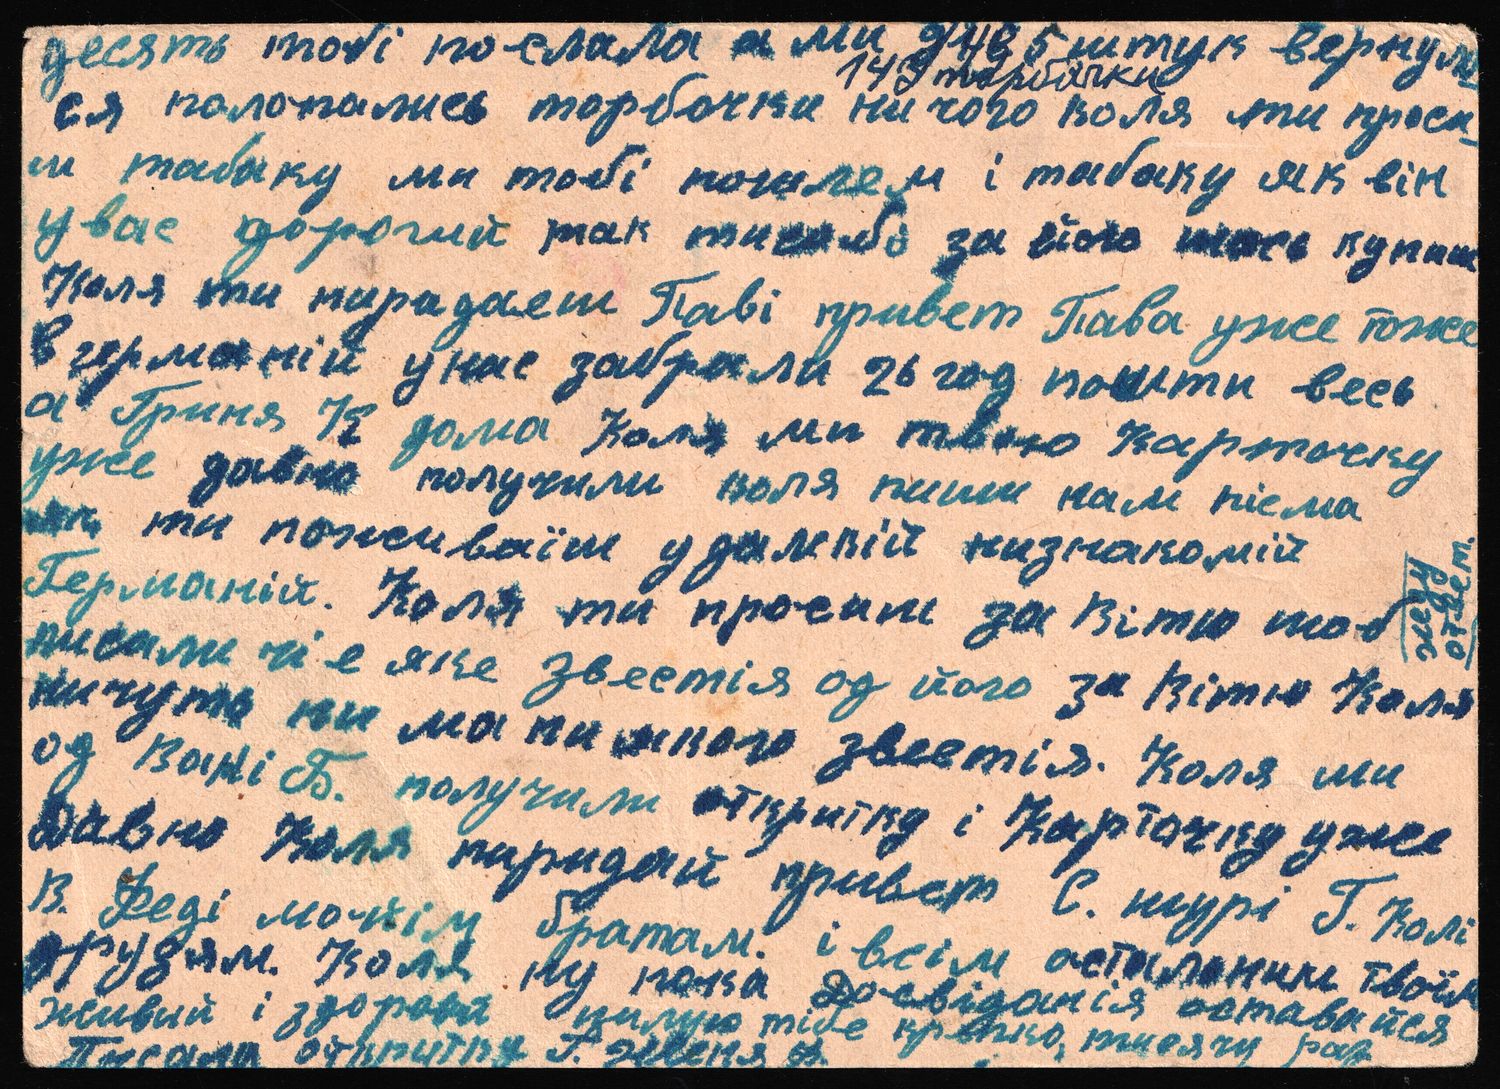 десять тобі послала а ми уже 5 штук вернули
143 торбачки
ся полопались торбочки ничого коля ти проси
ш табаку ми тобі пошлем і табаку як він
у вас дорогий так ти собі за його щось купиш
Коля ти пирадаеш Паві привет Пава уже тоже
в германій у нас забрали 26 год пошти весь
а Гриня К дома Коля ми твою карточку
уже давно получили коля пиши нам písма
як ти поживаїш у далькій низнакомій
Германій. Коля ти просиш за Вітю шоб
писали чі е яке звестія од його за Вітю Коля
ничуть ни ма ниякого звестія. Коля ми
од Вані Б. получили откритку і Карточку уже
давно Коля пиридай привет С. шурі Г. Колі
В. Феді мо-їм братам. і всім остальним твоїм
друзям. Коля ну пока Досвіданія оставайся
живий і здоровий цилую тібе крепко, тисячу раз
Писала откритку Г. женя В.
жду
ответ.